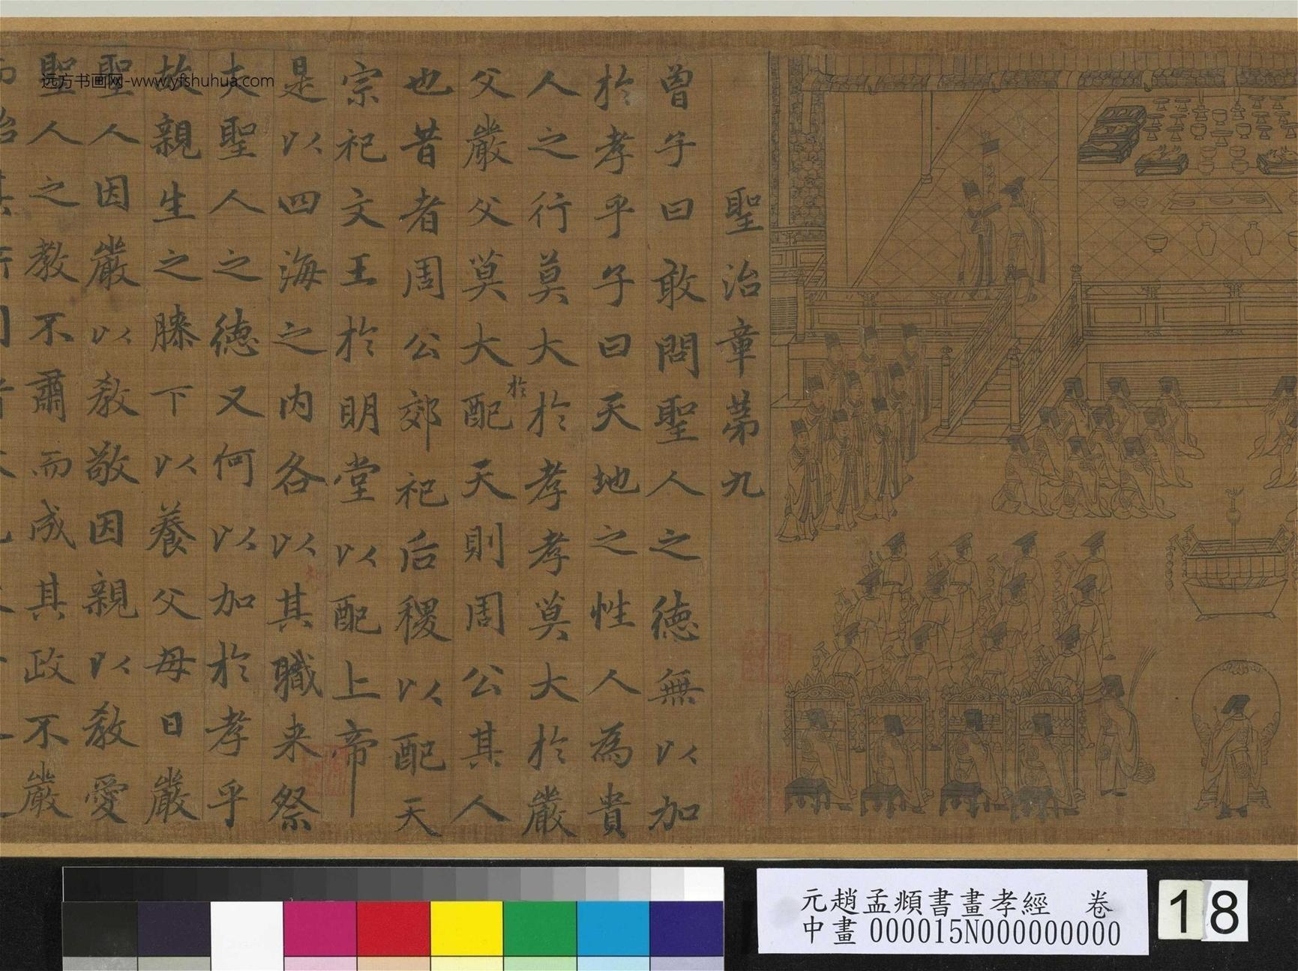 聖治章第九
曾子曰敢問聖人之德無以加
於孝乎子曰天地之性人為貴
人之行莫大於孝孝莫大於嚴
父嚴父莫大於配天則周公其人
也昔者周公郊祀后稷以配天
宗祀文王於明堂以配上帝
是以四海之内各以其職来祭
夫聖人之德又何以加於孝乎
故親生之膝下以養父母日嚴
聖人因嚴以教敬因親以教愛
聖人之教不肅而成其政不嚴
远方书画网-www.yfshuhua.com
元趙孟頫書畫孝經 卷
中畫 000015N000000000
18